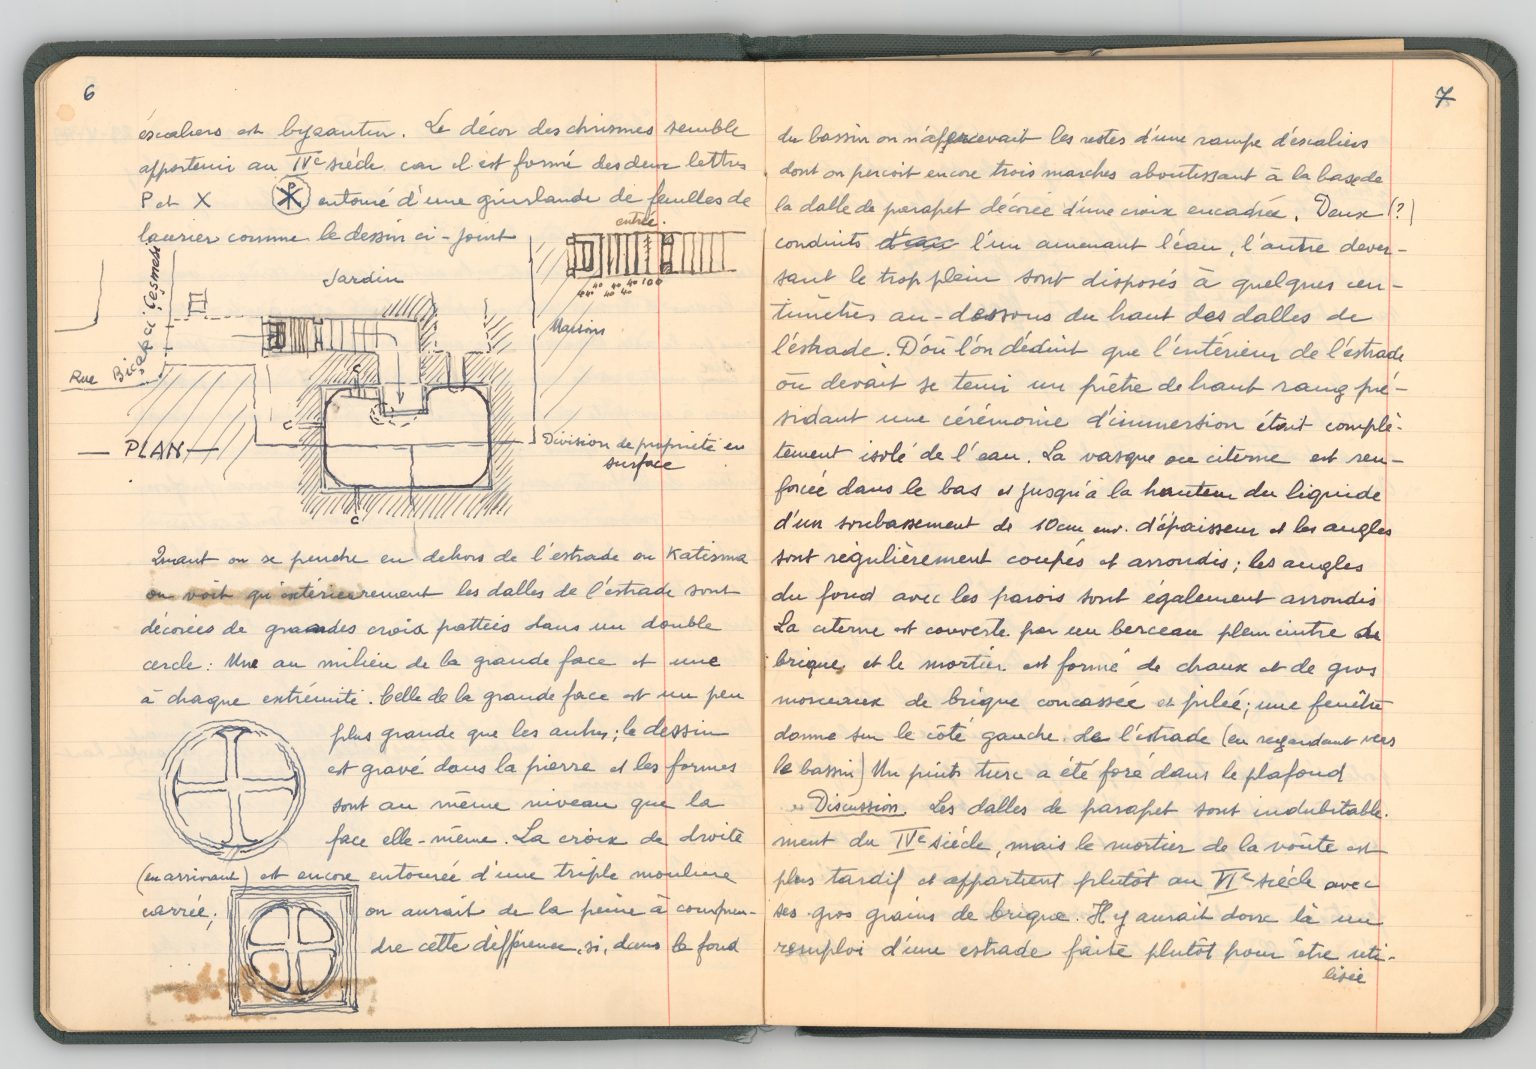 6
éscaliers est byzantin. Le décor des chrismes semble
appartenir au IVe siécle car il est formé des deux lettres
P et X entouré d'une guirlande de feuilles de
laurier comme le dessin ci-joint
entrée.
Jardin
40 40 40 40 100
40 40
Maisons
Rue Bıçakçı Çeşmesi
C
C
C
— PLAN —
Division de propriété en
surface
Quant on se penche en dehors de l'estrade ou Katisma
on voit qu'extérieurement les dalles de l'estrade sont
décorées de grandes croix pattées dans un double
cercle: Une au milieu de la grande face et une
à chaque extrémité. Celle de la grande face est un peu
plus grande que les autres; le dessin
est gravé dans la pierre et les formes
sont au même niveau que la
face elle-même. La croix de droite
(en arrivant) est encore entourée d'une triple moulure
carrée; on aurait de la peine à compren-
dre cette différence, si, dans le fond
7
du bassin on n'appercevait les restes d'une rampe d'éscaliers
dont on perçoit encore trois marches aboutissant à la base de
la dalle de parapet décorée d'une croix encadrée. Deux (?)
conduits d'eau l'un amenant l'eau, l'autre dever-
sant le trop plein sont disposés à quelques cen-
timètres au-dessous du haut des dalles de
l'éstrade. D'où l'on déduit que l'intérieur de l'éstrade
où devait se tenir un prêtre de haut rang pré-
sidant une cérémonie d'immersion était complè-
tement isolé de l'eau. La vasque ou citerne est ren-
forcée dans le bas et jusqu'à la hauteur du liquide
d'un soubassement de 10cm env. d'épaisseur et les angles
sont régulièrement coupés et arrondis; les angles
du fond avec les parois sont également arrondis
La citerne est couverte par un berceau plein cintre de
brique et le mortier est formé de chaux et de gros
morceaux de brique concassée et pilée; une fenêtre
donne sur le côté gauche de l'éstrade (en regardant vers
le bassin) Un puits turc a été foré dans le plafond
Discussion. Les dalles de parapet sont indubitable-
ment du IVe siécle, mais le mortier de la voûte est
plus tardif et appartient plutôt au VIe siécle avec
ses gros grains de brique. Il y aurait donc là un
remploi d'une estrade faite plutôt pour être uti-
lisée